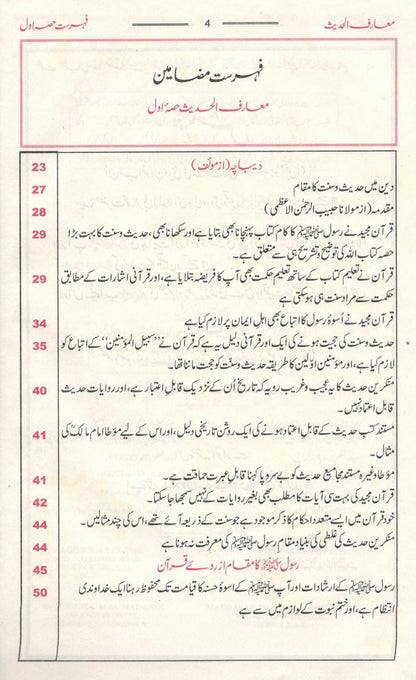 معارف الحدیث
4
فہرست حصہ اول
فہرست مضامین
معارف الحدیث حصہ اول
دیباچہ (از مولف) 23
دین میں حدیث و سنت کا مقام 27
مقدمہ (از مولانا حبیب الرحمٰن الاعظمی) 28
قرآن مجید نے رسول ﷺ کا کام کتاب پہنچانا بھی بتایا ہے اور سکھانا بھی، حدیث و سنت کا بہت بڑا 29
حصہ کتاب اللہ کی توضیح و تشریح ہی سے متعلق ہے۔
قرآن نے تعلیم کتاب کے ساتھ تعلیم حکمت بھی آپ کا فریضہ بتلایا ہے، اور قرآنی اشارات کے مطابق 29
حکمت سے مراد سنت ہی ہو سکتی ہے
قرآن مجید نے اُسوۂ رسول کا اتباع بھی اہل ایمان پر لازم کیا ہے 34
حدیث و سنت کی حجیت ہونے کی ایک اور قرآنی دلیل یہ ہے کہ قرآن نے ”سبیل المؤمنین“ کے اتباع کو 35
لازم کیا ہے، اور مؤمنین اولین کا طریقہ حدیث و سنت کو حجت ماننا تھا۔
منکرین حدیث کا یہ عجیب و غریب رویہ کہ تاریخ اُن کے نزدیک قابلِ اعتبار ہے، اور روایات حدیث 40
قابل اعتماد نہیں۔
مستند کتب حدیث کے قابل اعتماد ہونے کی ایک روشن تاریخی دلیل، اور اس کے لیے مؤطا امام مالکؒ کی 41
مثال۔
مؤطا وغیرہ مستند مجامیع حدیث کو بے سروپا کہنا قابل عبرت حماقت ہے۔ 41
قرآن مجید کی بہت سی آیات کا مطلب بھی بغیر روایات کے نہیں سمجھا جا سکتا۔ 42
خود قرآن میں ایسے متعدد احکام کا ذکر موجود ہے جو سنت کے ذریعہ آئے تھے، اس کی چند مثالیں۔ 44
منکرین حدیث کی غلطی کی بنیاد مقام رسول ﷺ کی معرفت نہ ہونا ہے 44
رسول ﷺ کا مقام از روئے قرآن 45
رسول ﷺ کے ارشادات اور آپ ﷺ کے اسوۂ حسنہ کا قیامت تک محفوظ رہنا ایک خداوندی 50
انتظام ہے، اور ختم نبوت کے لوازم میں سے ہے